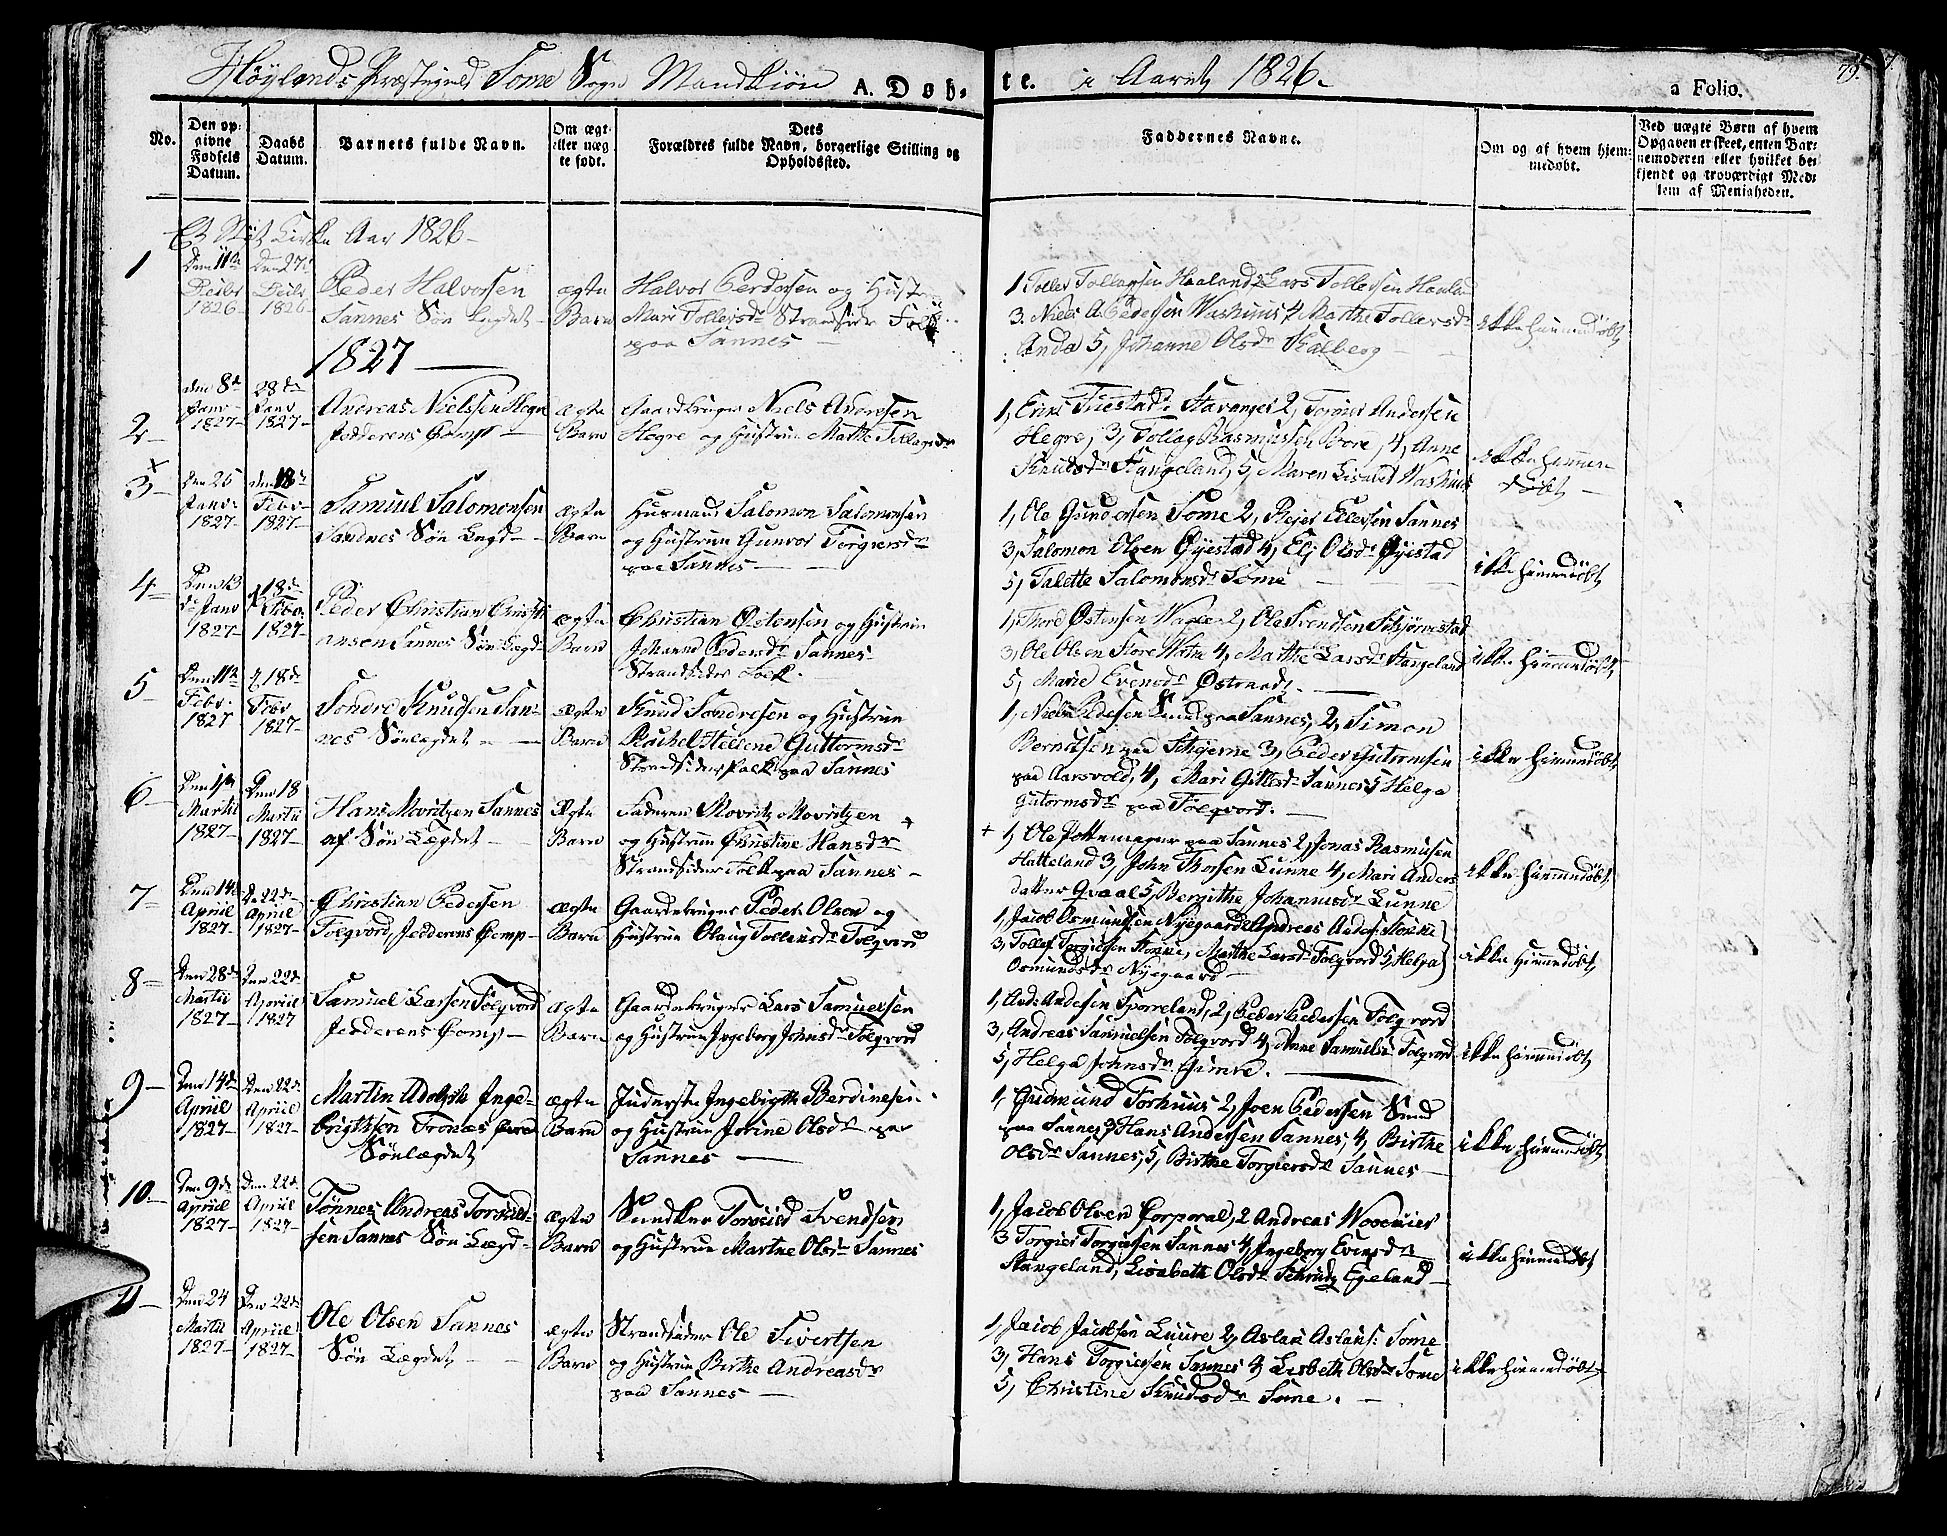 Høylands Præstegield Some Sogn Mandkiøn A. Døb-
te. i Aaret 1826.
a Folio.
79.
No.
Den op-
givne
Fødsels
Datum.
Daabs
Datum.
Barnets fulde Navn.
Om ægt-
eller uæg-
te født.
Dets
Forældres fulde Navn, borgerlige Stilling og
Opholdssted.
Faddernes Navne.
Om og af hvem hjem-
medøbt.
Ved uægte Børn af hvem
Opgaven er skeet, enten Bar-
nemoderen eller hvilket be-
kjendt og troværdigt Med-
lem af Menigheden.
Kirke Aar 1826-
1
Den 11te
Decbr
1826-
Den 27de
Decbr
1826-
Peder Halvorsen
Sannes Søn Legdet-
ægte
Barn
Halvor Pedersen og Hustru
Mari Tollefsdr Strandsider Folk
paa Sannes -
1 Tollef Tollagsen Haaland 2 Lars Tollefsen Haaland
3. Niels A. Pedersen Washuus 4 Marthe Tollefsdr
Anda 5, Johanne Olsdr Kalberg -
ikke hiemmedøbt
1827 -
2-
den 8de
Janr
1827-
28de
Janr
1827-
Andreas Nielssen Hegre
Jedderens Comp -
ægte
Barn
Gaardbruger Niels Andersen
Hegre og Hustrue Marthe Tollagsdr
1, Eric Tiestad Stavanger 2, Torgier Andersen
Hegre, 3, Tollag Rasmussen Bore, 4, Anne
Knudsdr Stangeland, 5, Maren Lisabet Washuus
ikke hiemme-
døbt -
3-
Den 25
Janr
1827-
den 18de
Febr
1827-
Samuel Salomonsen
Sandnes Søn Legd -
ægte
Barn
Husmand Salomon Salomonsen
og Hustrue Gunvor Torgiersdr
paa Sannes -
1, Ole Gundersen Some 2, Rejer Ellersen Sannes
3, Salomon Olsen Øyestad 4, Elj Olsdr Øyestad
5, Talette Salomonsdr Some
ikke hiemmedøbt
4-
Janr
1827-
18de
Febr.
1827-
Peder Christian Christi
ansen Sannes Søn Legd-
ægte
Barn
Christian Østensen og Hustrue
Johanne Pedersdr Sannes-
Strandsider Folk.
1, Thore Østensen Wagle 2, Ole Svendsen Schjørvestad
3, Ole Olsen Store Watne 4, Marthe Larsdr Stangeland
5, Marie Evensdr
ikke hiemmedøbt,
5
Den 11te
Febr.
1827
18de
Febr
1827-
Sondre Knudsen San-
nes Sønlegdet -
ægte
Barn
Knud Sondresen og Hustrue
Rachel Helene Guttormsdr
Strandsider Folk paa Sannes
1, Niels Pedersen Smed paa Sannes, 2, Simon
Berntsen paa Schjerne 3, Peder Gutormsen
paa Aarsvold, 4, Mari Gittlesdr Sannes 5 Helga
Gutormsdr paa Folqvord. -
ikke hiemmedøbt
6-
Den 1ste
Martii
1827-
Den 18
Martii
1827-
Hans Movritzen Sannes
af Søn Legdet -
Ægte
Barn
Faderen Movritz Movritzen +
og Hustrue Christine Hansdr
Strandsider Folk paa Sannes -
+ 1, Ole Pottemager paa Sannes 2, Jonas Rasmusen
Hatteland 3, John Thorsen Lunne 4, Mari Anders
datter Qvaal 5, Bergithe Johannesdr Lunne
ikke hiemmedøbt
7-
Den 14de
Apriil
1827-
Den 22de
Apriil
1827-
Christian Pedersen
Folqvord, Jedderens Comp-
ægte
Barn
Gaardebruger Peder Olsen og
Hustrue Olaug Tollefsdr Folqvord
1, Jacob Osmundsen Nyegaard 2 Andreas
3, Tollef Torgiersen Marthe Larsdr Folqvord 5, Helga
Osmundsdr Nyegaard -
ikke hiemmedøbt
8-
Den 28de
Martii
1827-
Den 22de
Apriil
1827
Samuel Larsen Folqvord
Jedderens Comp -
ægte
Barn
Gaardebruger Lars Samuelsen
og Hustrue Ingeborg Johnsdr Folqvord
1, Anders Andersen Sporreland, 2, Peder Pedersen Folqvord
3, Andreas Samuelsen Folqvord 4, Anne Samuelsdr Folqvord
5, Helga Johnsdr Gimre. -
ikke hiemmedøbt
9-
Den 14de
Apriil
1827-
Den 22de
Apriil
1827-
Martin Adolph Inge-
brigtsen
Sønlægdet
ægte
Barn
Inderste Ingebrigt Berdinesen
og Hustrue Jorine Olsdr paa
Sannes -
1, Gudmund Torhuus 2, Joen Pedersen Smed
paa Sannes 3 Hans Andersen Sannes, 4, Birthe
Olsdr Sannes, 5, Birthe Torgiersdr Sannes -
ikke hiemmedøbt
10-
Den 9de
Apriil
1827-
Den 22de
Apriil
1827-
Tønnes Andreas Torkild-
sen Sannes Søn Legd-
ægte
Barn
Torkild Svendsen
og Hustrue Marthe Olsdr Sannes
1, Jacob Olsen Corporal, 2 Andreas
3 Torgier Torgiersen Sannes 4, Ingeborg Evensdr
Stangeland, Lisabeth Olsdr Egeland -
ikke hiemmedøbt
11-
Den 24
Martii
1827-
Den 22de
Apriil
1827-
Ole Olsen Sannes
Søn Legdet -
ægte
Barn
Strandsider Ole Sivertsen
og Hustrue Birthe Andreasdr
paa Sannes -
1, Jacob Jacobsen Luure 2, Aslak Aslaks: Some
3, Hans Torgiersen Sannes 4, Lisbeth Olsdr Some
5, Christine Knudsdr Some. -
ikke hiemmedøbt